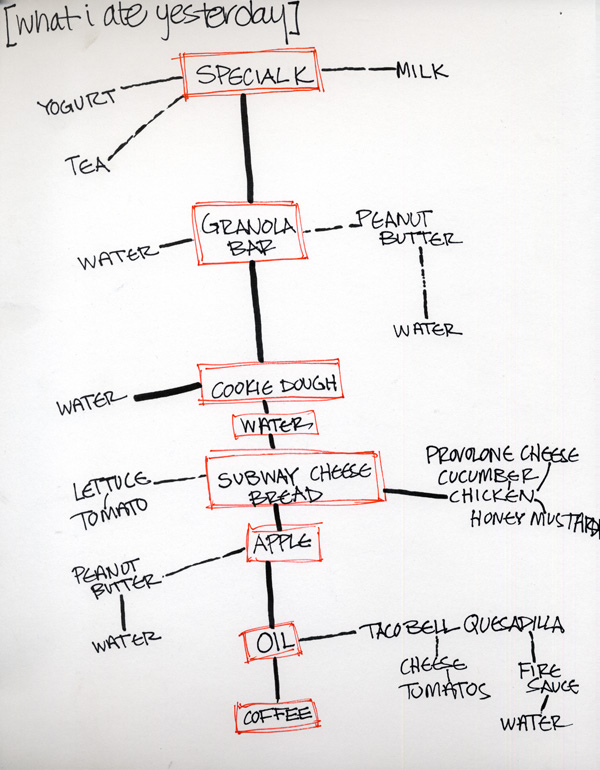 [what i ate yesterday]
SPECIAL K
MILK
YOGURT
TEA
GRANOLA
BAR
PEANUT
BUTTER
WATER
WATER
COOKIE DOUGH
WATER
WATER
SUBWAY CHEESE
BREAD
LETTUCE
TOMATO
PROVOLONE CHEESE
CUCUMBER
CHICKEN
HONEY MUSTARD
APPLE
PEANUT
BUTTER
WATER
OIL
TACO BELL QUESADILLA
CHEESE
TOMATOS
FIRE
SAUCE
WATER
COFFEE